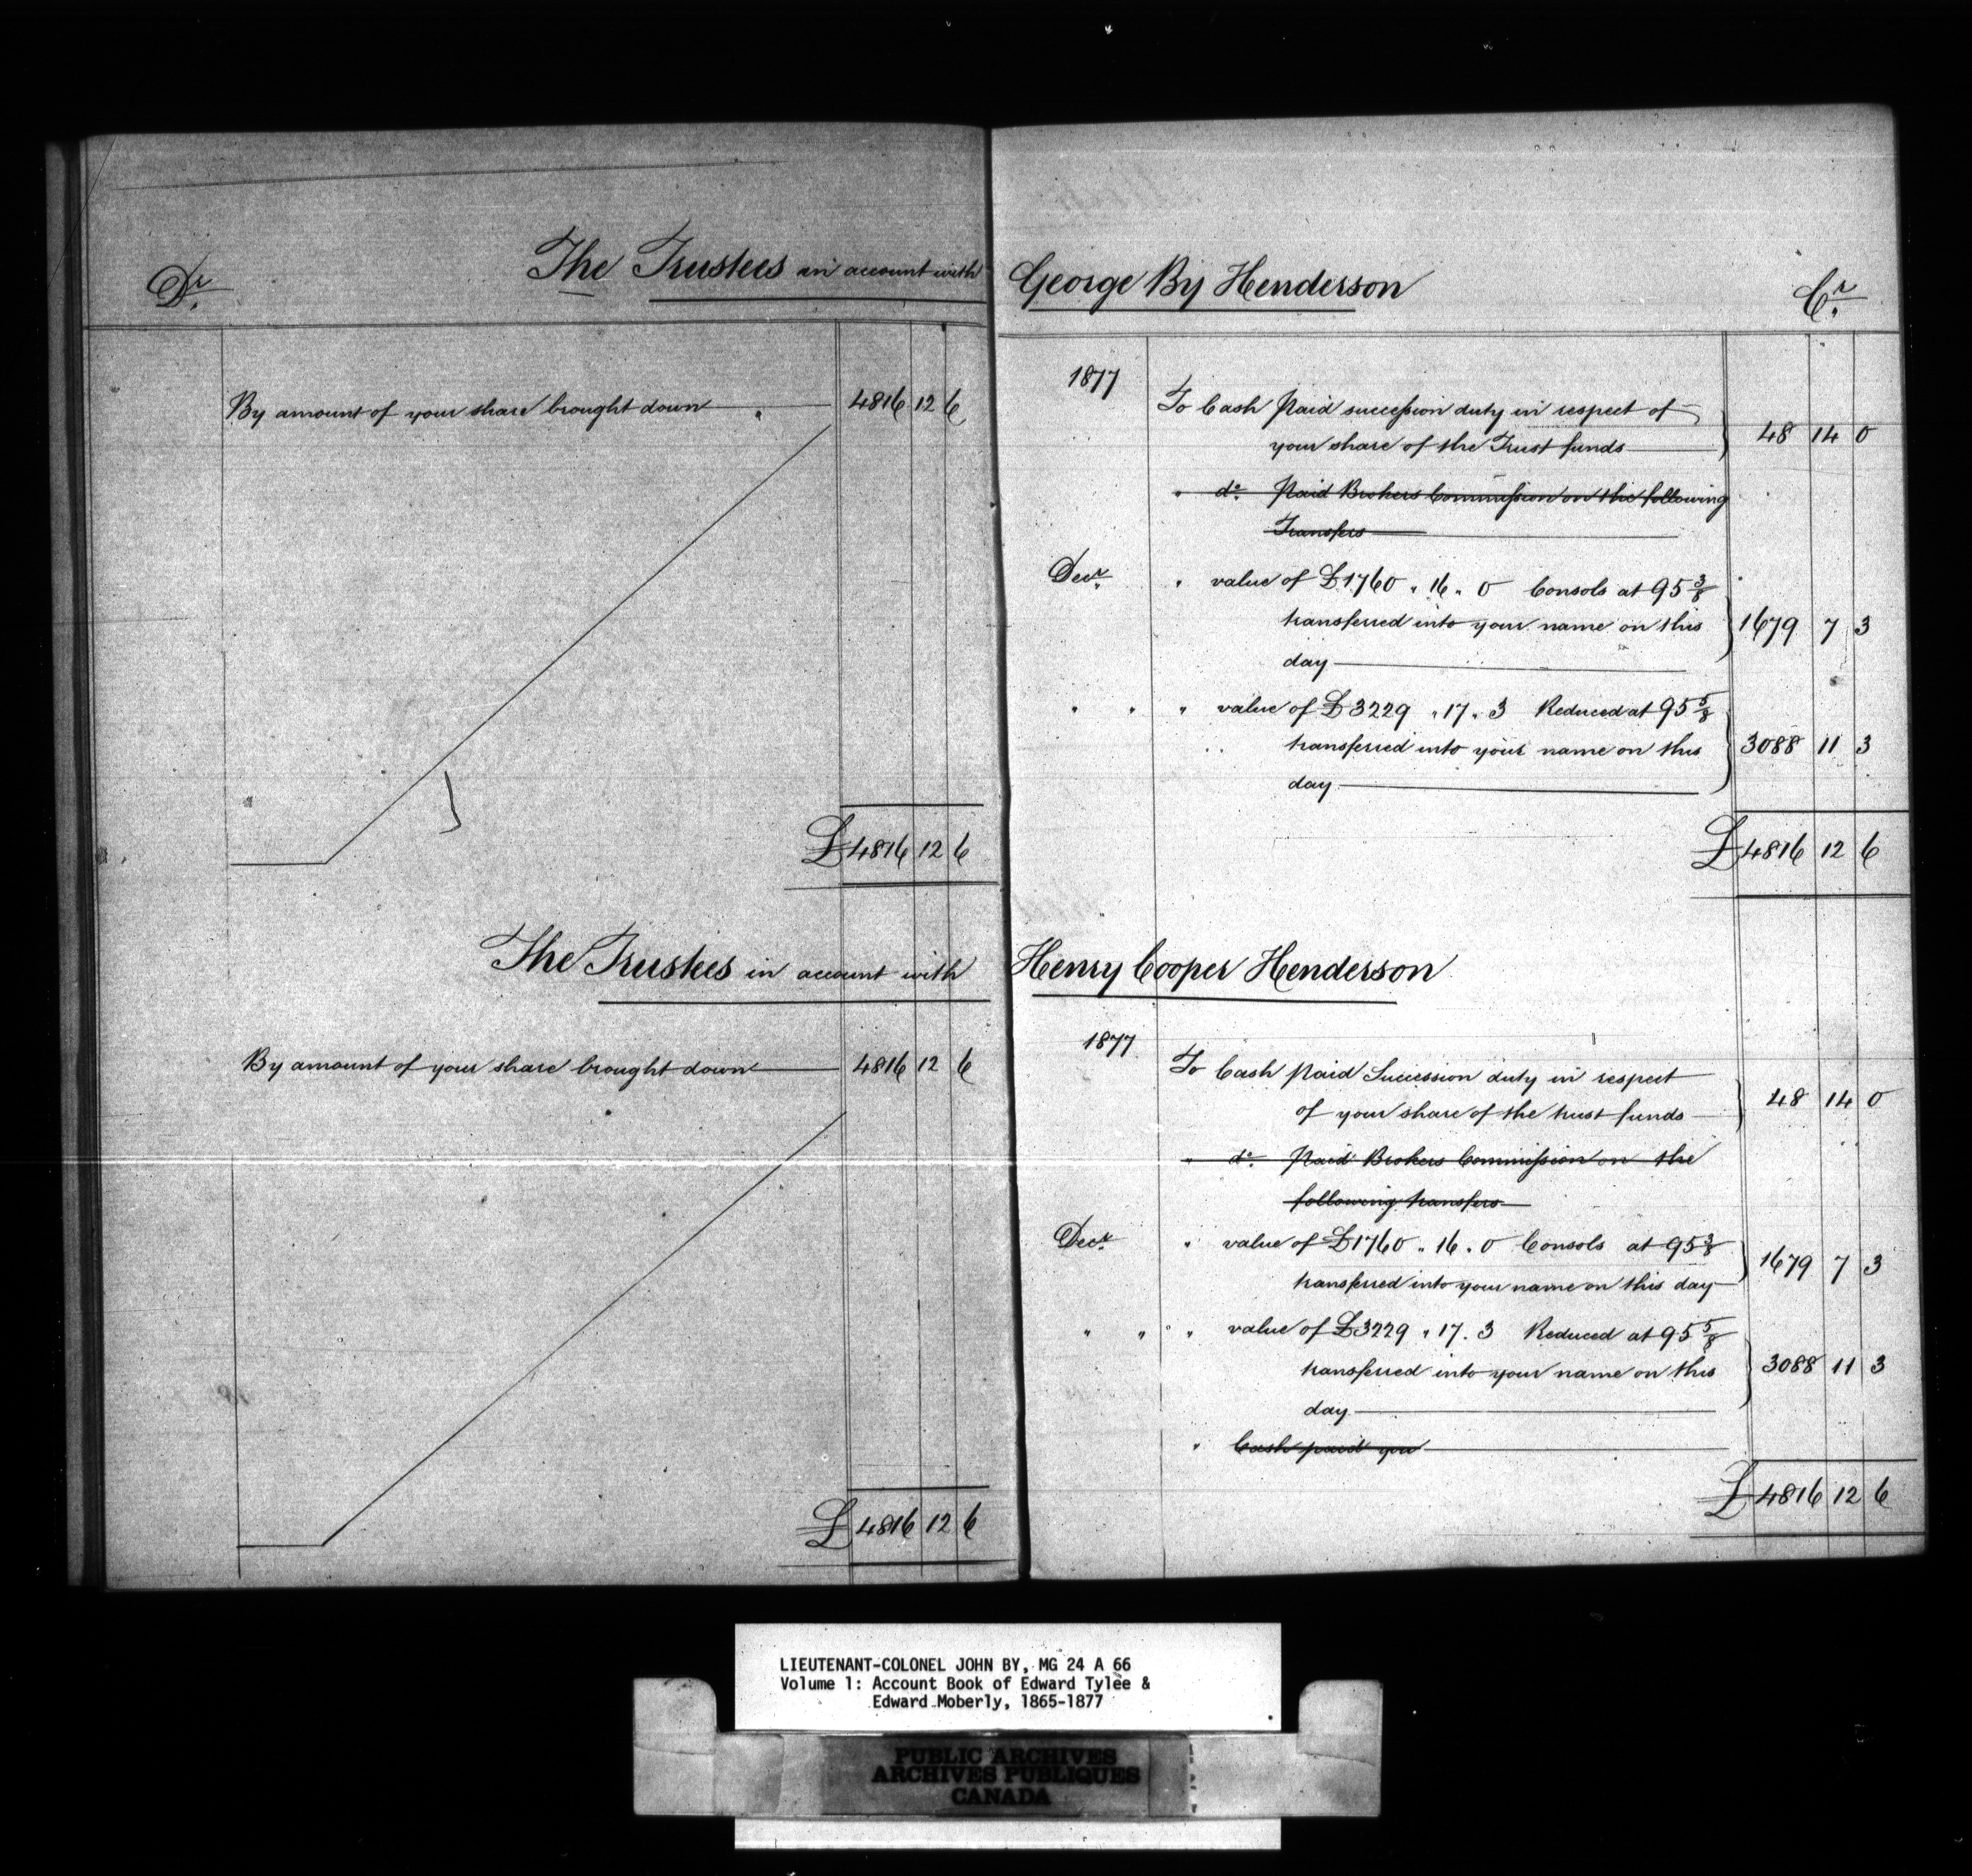 Dr.
The Trustees in account with
By amount of your share brought down " 4816 12 6
£4816 12 6
The Trustees in account with
By amount of your share brought down 4816 12 6
£4816 12 6
George By Henderson
Cr.
1877
To Cash Paid succession duty in respect of
your share of the Trust funds 48 14 0
" do. Paid Brokers Commission on the following
Transfers
Decr. " value of £1760 " 16 " 0 Consols at 95 3/8
transferred into your name on this 1679 7 3
day
" " " value of £3229 " 17 " 3 Reduced at 95 5/8
transferred into your name on this 3088 11 3
day
£4816 12 6
Henry Cooper Henderson
1877
To Cash paid Succession duty in respect
of your share of the trust funds 48 14 0
" do. Paid Brokers Commission on the
following transfers
Decr. " value of £1760 " 16 " 0 Consols at 95 3/8
transferred into your name on this day 1679 7 3
" " " value of £3229 " 17 . 3 Reduced at 95 5/8
transferred into your name on this 3088 11 3
day
" Cash paid you
£4816 12 6
LIEUTENANT-COLONEL JOHN BY, MG 24 A 66
Volume 1: Account Book of Edward Tylee &
Edward Moberly, 1865-1877
PUBLIC ARCHIVES
ARCHIVES PUBLIQUES
CANADA